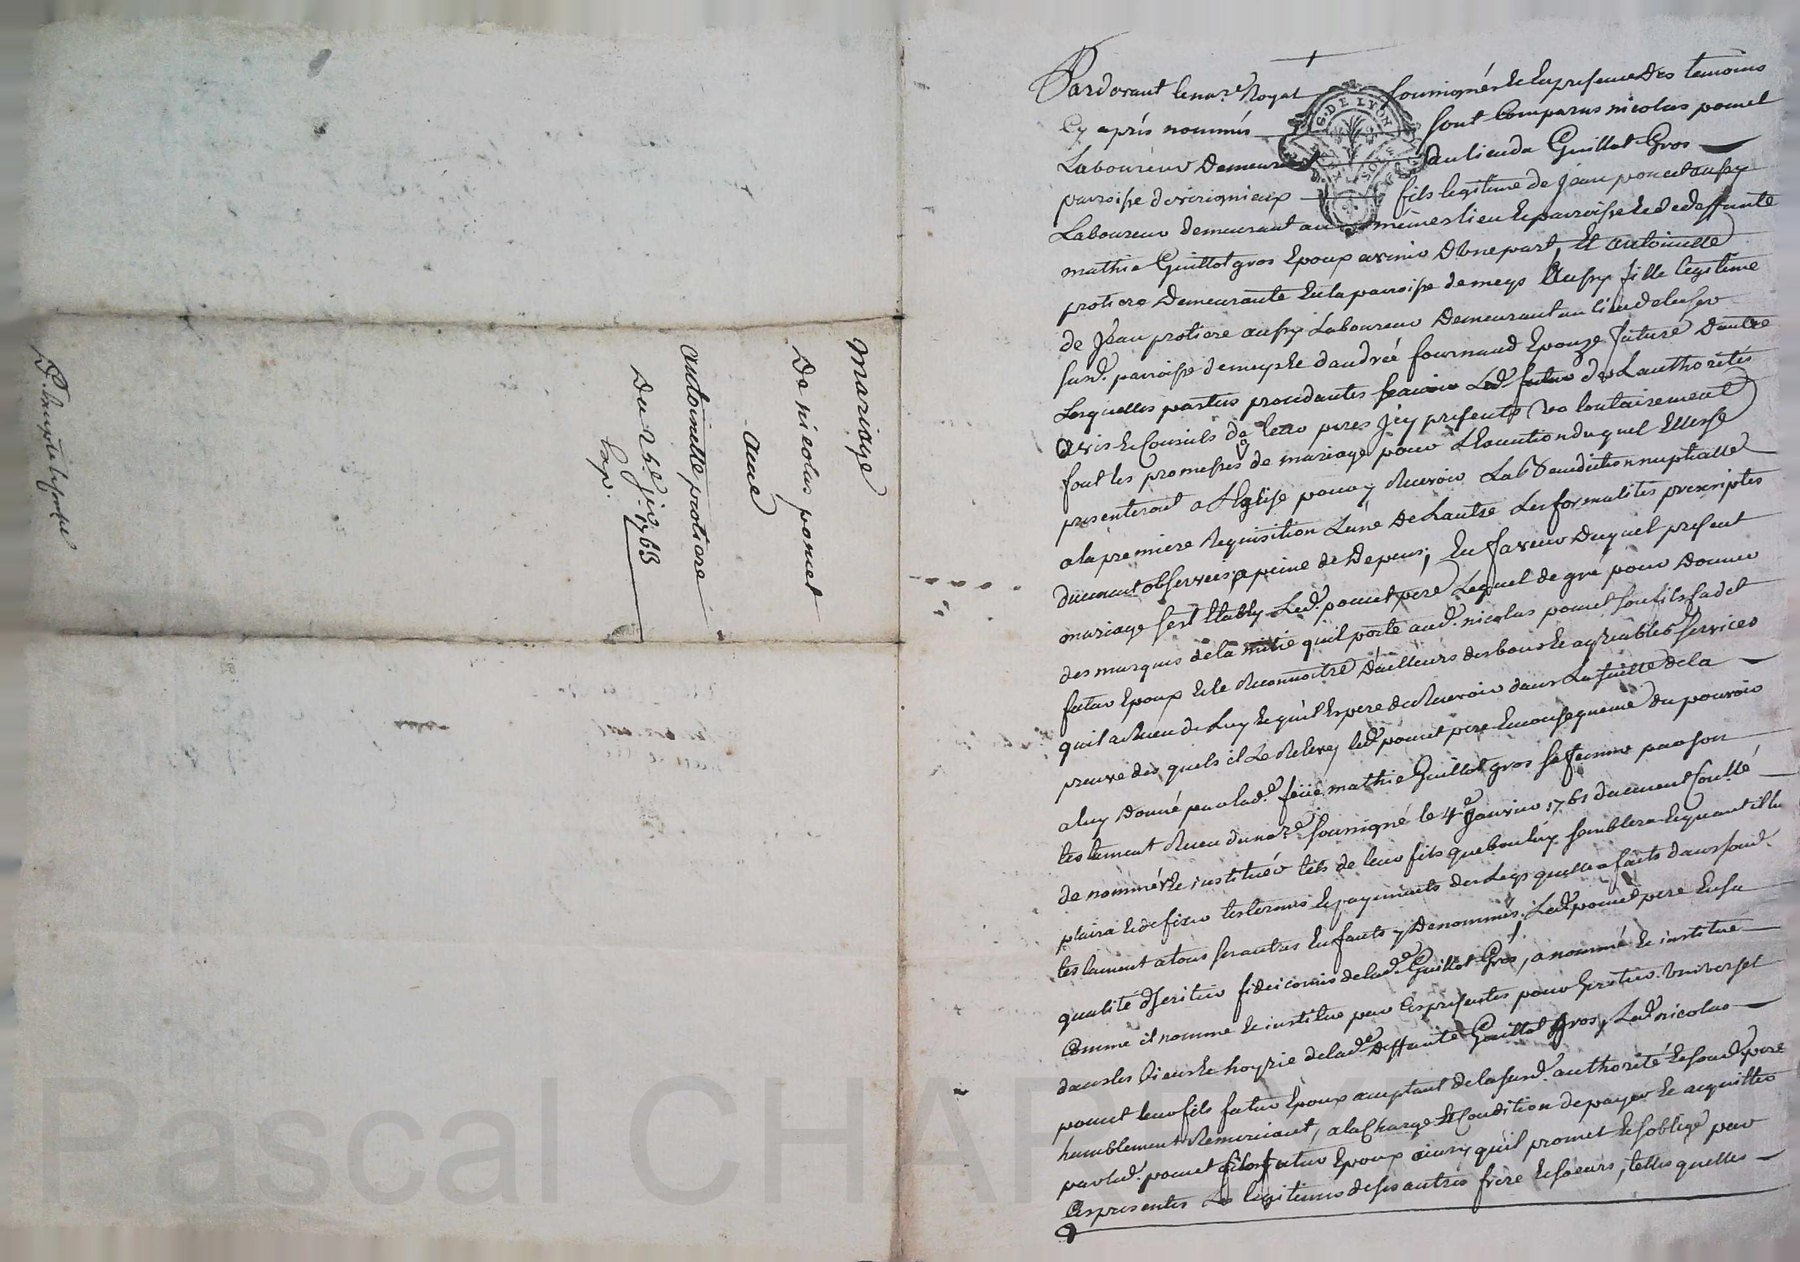 mariage
De nicolas poncet
avec
antoinette protiere
Du 25e jer 1763
Exp.
Pardevant le nore Royal soussigné et en presence des temoins
Cy après nommés sont Comparus nicolas poncet
Laboureur Demeurant au lieu de Guillot Gros
parroisse de virignieux fils legitime de Jean poncet aussy
Laboureur demeurant au mêmes lieu et parroisse et de deffunte
mathie Guillot gros Epoux avenir D'une part, Et antoinette
protiere Demeurante en la parroisse de meys Aussy fille legitime
de Jean protiere aussy Laboureur Demeurant au lieu de
susd. parroisse de meys et d'andrée fournaud Epouze future D'autre
Lesquelles parties procedantes sçavoir Led. futur de L'authorité
avis et Conseils de leur peres icy presents volontairement
font les promesses de mariage pour L'Execution duquel Elles se
presenteront a L'Eglise pour y Recevoir La Benediction nuptialle
a la premiere Requisition L'une De L'autre Les formalités prescriptes
duement observées a peine de Depens, En faveur Duquel present
mariage s'est Etably Led. poncet pere Lequel de gre pour Donner
des marques de la mitié qu'il porte aud. nicolas poncet son fils
futur Epoux et le Reconnoitre D'ailleurs des bons et agreables services
qu'il a Receu de Luy et qu'il Espere de Recevoir dans La suitte de la
preuve des quels il Le Releve, led. poncet pere En consequence du pouvoir
a luy Donné par lad. feüe mathie Guillot gros sa femme par son
testament Receu du nore soussigné le 4e Janvier 1761 duement Controllé
de nommer et instituer tels de leur fils que bon luy semblera et quant il luy
plaira et de fixer les termes et payements des Legs qu'elle a faits dans sond.
testament a tous ses autres Enfants y Denommés, Led. poncet pere En sa
qualité d'heritier fideicomis de lad. Guillot Gros, a nommé et institué
Comme il nomme et institue par Ces presentes pour heritier universel
dans les Biens et hoyrie de lad. deffunte Guillot gros, Led. nicolas
poncet leur fils futur Epoux acceptant de la susd. authorité et sond. pere
humblement Remerciant, a la Charge et Condition de payer et acquitter
par led. poncet fils futur Epoux ainsy qu'il promet et s'oblige par
Ces presentes Les legitimes de ses autres frere et soeurs, telles quelles
G. DE LYON
Pascal